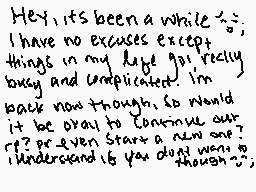 Hey, its been a while ^^;
I have no excuses except
things in my life got really
busy and complicated. I'm
back now though, so would
it be okay to continue our
rp? or even start a new one?
i understand if you dont want to
though ^^;